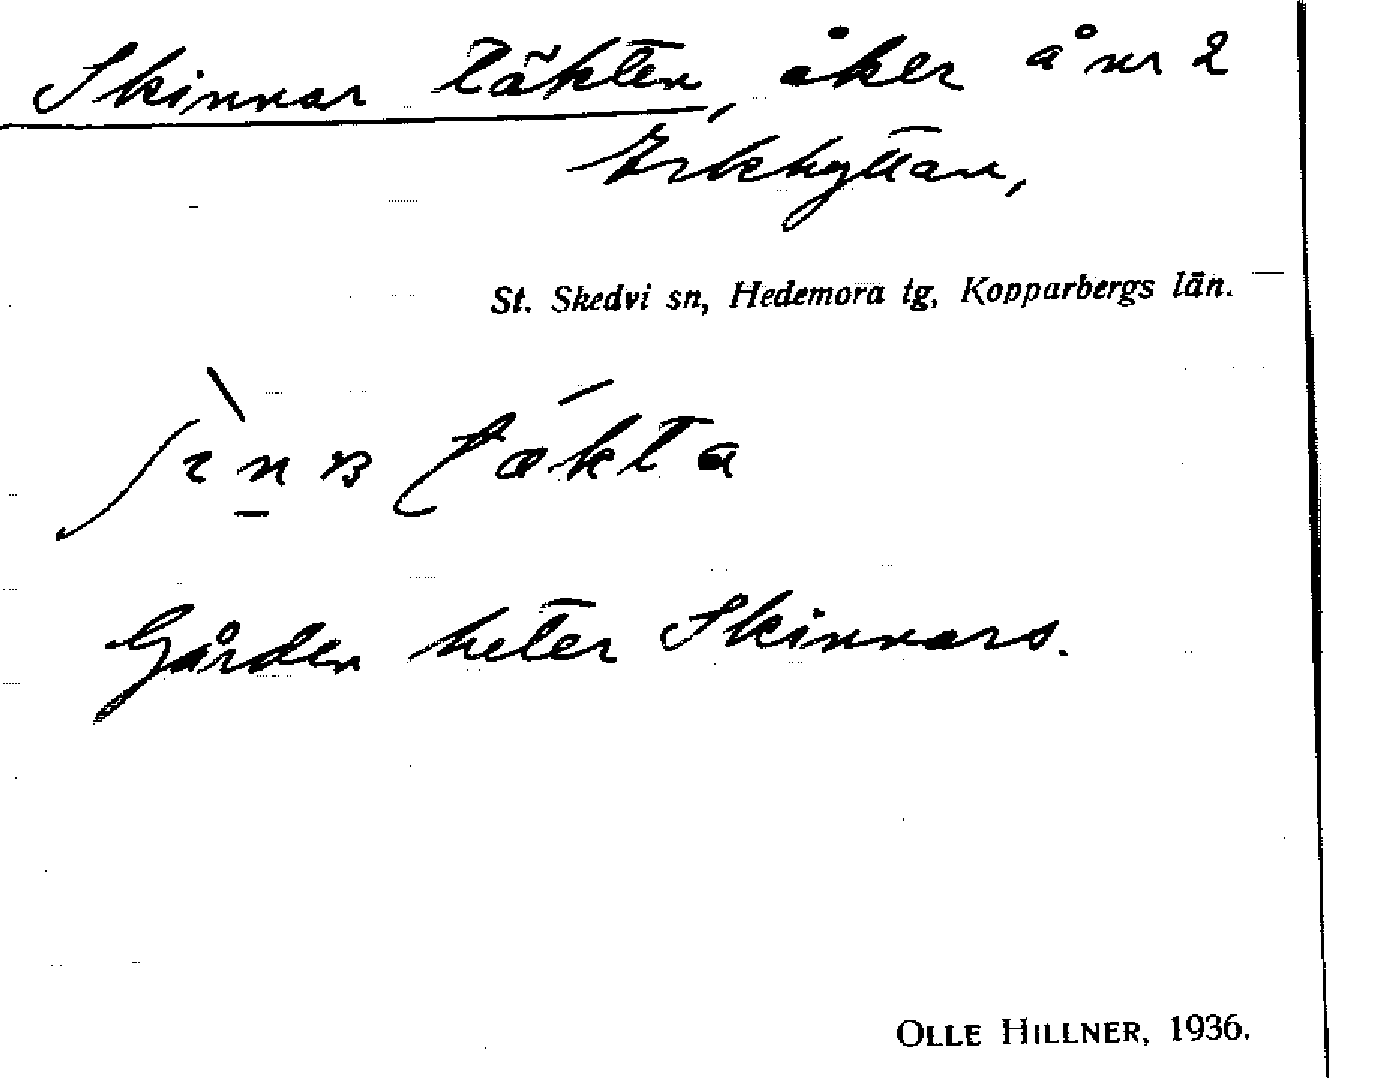 Skinnar täkten, åker å nr 2
Erkhyttan,
St. Skedvi sn, Hedemora tg, Kopparbergs län.
Gården heter Skinnars.
OLLE HILLNER, 1936.